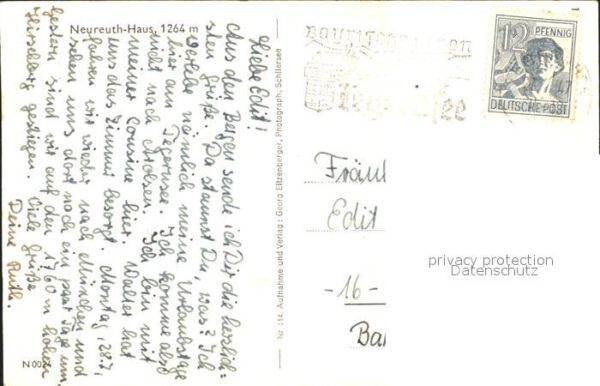 Neureuth-Haus, 1264 m
Liebe Edit!
Aus den Bergen sende ich Dir die herzlich-
sten Grüße. Da staunst Du, was? Ich
verlebe nämlich meine Urlaubstage
hier am Tegernsee. Ich komme also
nicht nach Arolsen. Ich bin mit
meiner Cousine hier. Walter hat
uns das Zimmer besorgt. Montag, 28.7.,
fahren wir wieder nach München und
sehen uns dort noch ein paar Tage um.
Gestern sind wir auf den 1760 m hohen
gestiegen. Viele Grüße
Deine Ruth.
N 002
Nr. 114. Aufnahme und Verlag: Georg Eitzenberger, Photograph, Schliersee
Tegernsee
12 PFENNIG
DEUTSCHE POST
47
Fräul
Edit
-16-
Ba
privacy protection
Datenschutz